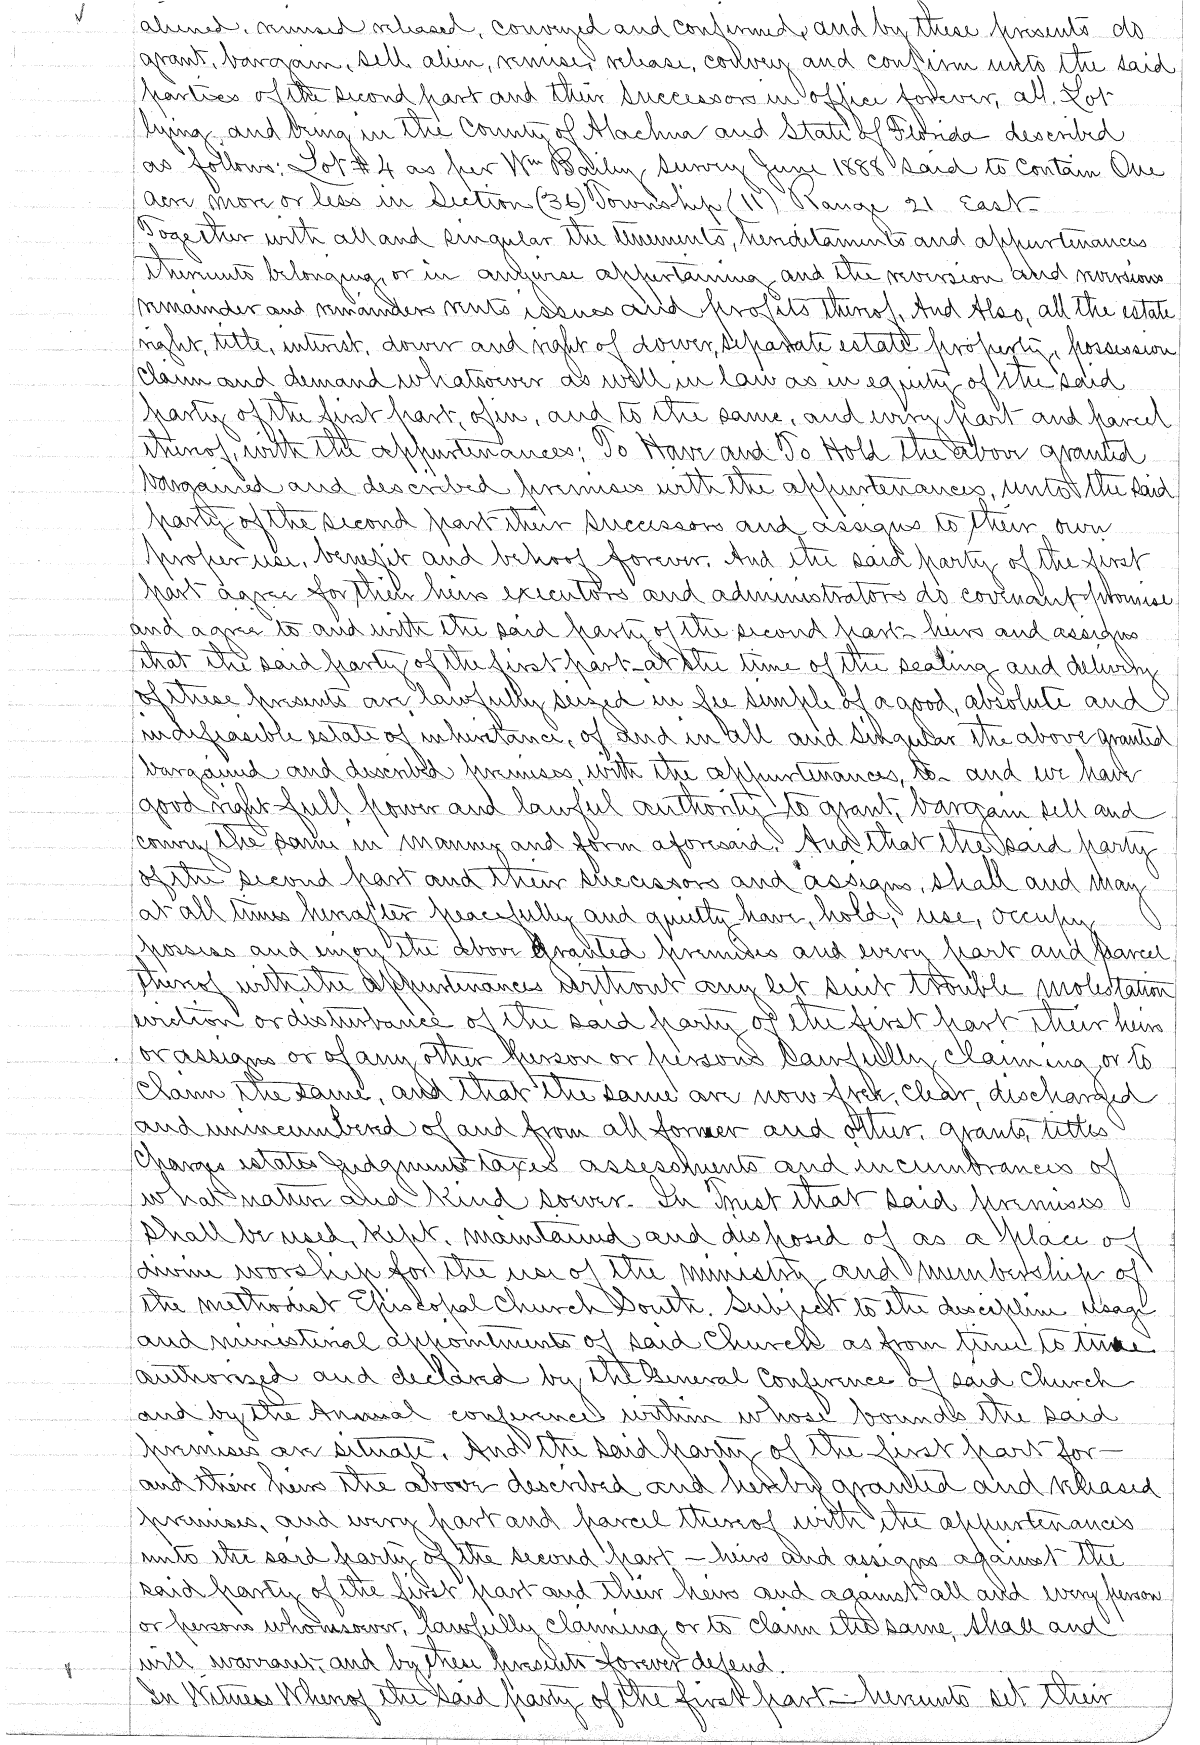 aliened, remised released, conveyed and confirmed, and by these presents do
grant, bargain, sell, alien, remise, release, convey and confirm unto the said
parties of the second part and their successors in office forever, all Lot
lying and being in the County of Alachua and State of Florida described
as follows: Lot #4 as per Wm Bailey survey June 1888 said to contain One
acre more or less in Section (36) Township (11) Range 21 East-
Together with all and singular the tenements, hereditaments and appurtenances
thereunto belonging, or in anywise appertaining and the reversion and reversions
remainder and remainders rents issues and profits thereof, And Also, all the estate
right, title, interest, dower and right of dower, separate estate property, possession
Claim and demand whatsoever as well in law as in equity of the said
party of the first part, of, in, and to the same, and every part and parcel
thereof, with the appurtenances; To Have and To Hold the above granted
bargained and described premises with the appurtenances, unto the said
party of the second part their successors and assigns to their own
proper use, benefit and behoof forever. And the said party of the first
part agree for their heirs executors and administrators do covenant promise
and agree to and with the said party of the second part- heirs and assigns
that the said party of the first part- at the time of the sealing and delivery
of these presents are lawfully seized in fee simple of a good, absolute and
indefeasible estate of inheritance, of and in all and singular the above granted
bargained and described premises, with the appurtenances, &- and we have
good right full power and lawful authority to grant, bargain sell and
convey the same in manner and form aforesaid. And that the said party
of the second part and their successors and assigns, shall and may
at all times hereafter peacefully and quietly have, hold, use, occupy
possess and enjoy the above granted premises and every part and parcel
thereof with the appurtenances without any let suit trouble molestation
eviction or disturbance of the said party of the first part their heirs
or assigns or of any other person or persons lawfully claiming or to
claim the same, and that the same are now free, clear, discharged
and unincumbered of and from all former and other, grants, titles
Charges estates Judgments taxes assessments and incumbrances of
what nature and kind soever. In Trust that said premises
shall be used, kept, maintained and disposed of as a place of
divine worship for the use of the ministry and membership of
the Methodist Episcopal Church South. Subject to the discipline usage
and ministerial appointments of said Church as from time to time
authorized and declared by the General Conference of said Church
and by the Annual conference within whose bounds the said
premises are situate. And the said party of the first part for-
and their heirs the above described and hereby granted and released
premises, and every part and parcel thereof with the appurtenances
unto the said party of the second part - heirs and assigns against the
said party of the first part and their heirs and against all and every person
or persons whomsoever, lawfully claiming or to claim the same, shall and
will warrant, and by these presents forever defend.
In Witness Whereof the said party of the first part- hereunto set their